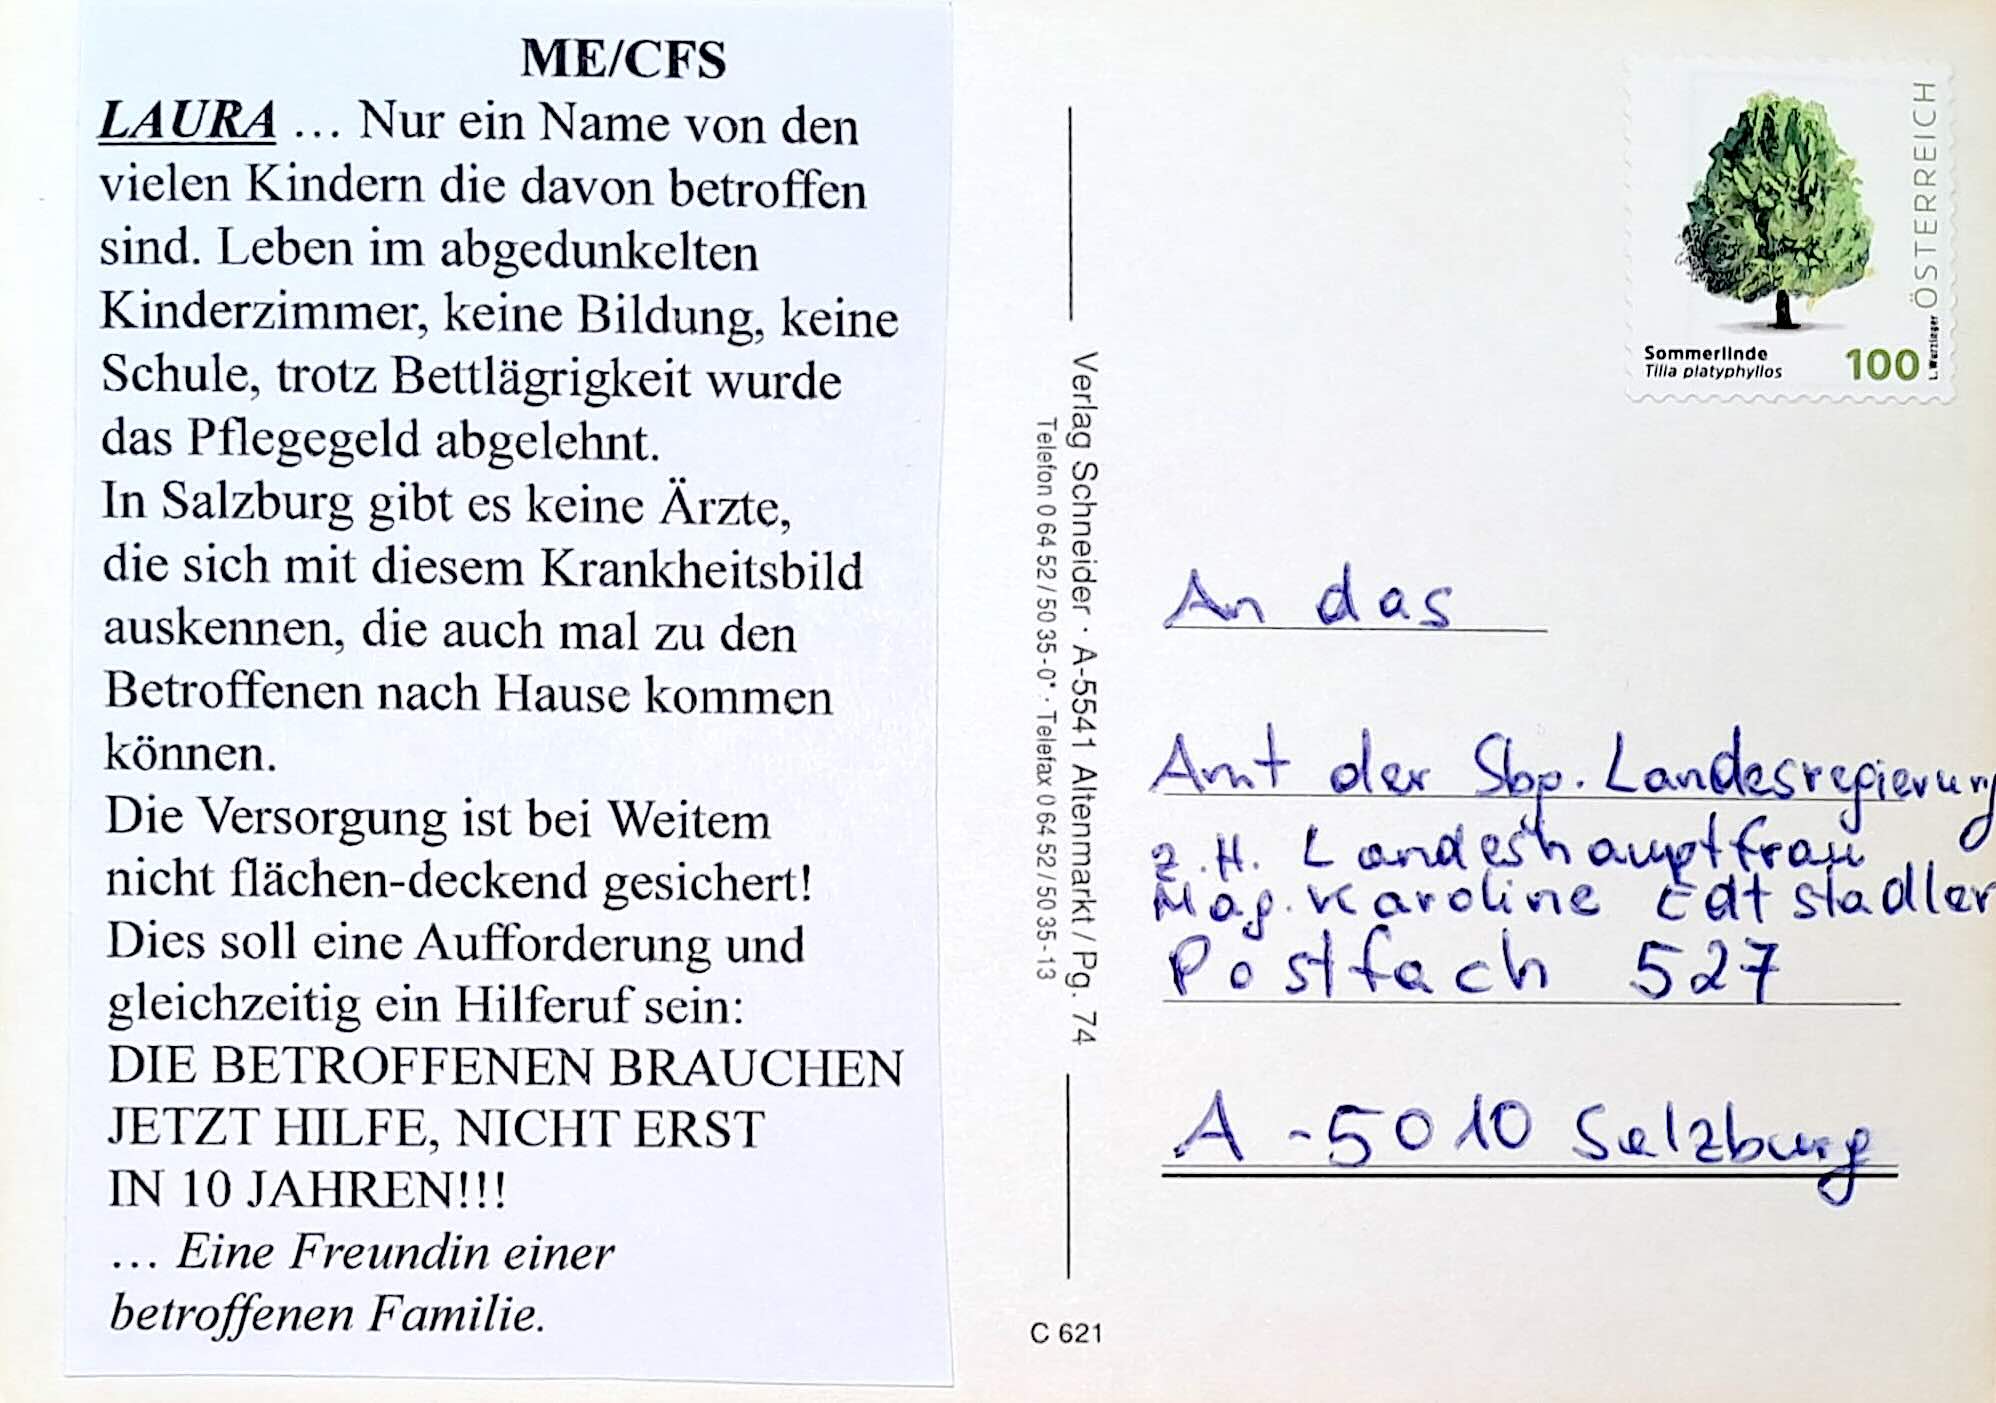 ME/CFS
LAURA … Nur ein Name von den
vielen Kindern die davon betroffen
sind. Leben im abgedunkelten
Kinderzimmer, keine Bildung, keine
Schule, trotz Bettlägrigkeit wurde
das Pflegegeld abgelehnt.
In Salzburg gibt es keine Ärzte,
die sich mit diesem Krankheitsbild
auskennen, die auch mal zu den
Betroffenen nach Hause kommen
können.
Die Versorgung ist bei Weitem
nicht flächen-deckend gesichert!
Dies soll eine Aufforderung und
gleichzeitig ein Hilferuf sein:
DIE BETROFFENEN BRAUCHEN
JETZT HILFE, NICHT ERST
IN 10 JAHREN!!!
… Eine Freundin einer
betroffenen Familie.
Verlag Schneider · A-5541 Altenmarkt / Pg. 74
Telefon 0 64 52 / 50 35-0* · Telefax 0 64 52 / 50 35-13
C 621
ÖSTERREICH
L. Wurzinger
Sommerlinde
Tilia platyphyllos
100
An das
Amt der Sbg. Landesregierung
z.H. Landeshauptfrau
Mag. Karoline Edtstadler
Postfach 527
A-5010 Salzburg